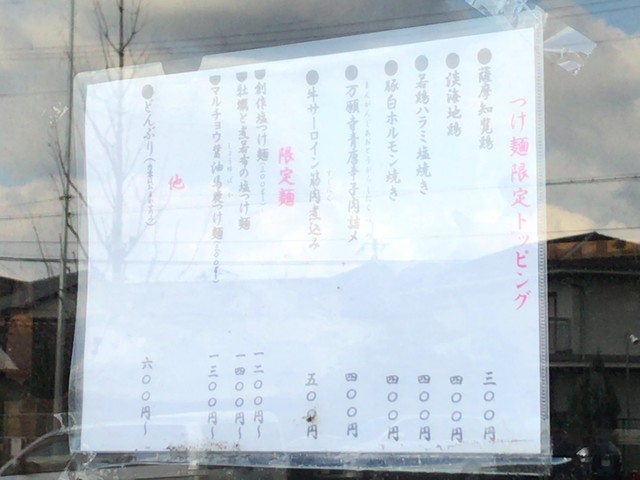 つけ麺限定トッピング
●薩摩知覧鶏 三〇〇円
●淡海地鶏 四〇〇円
●若鶏ハラミ塩焼き 四〇〇円
●豚白ホルモン焼き 四〇〇円
●万願寺青唐辛子肉詰メ 四〇〇円
●牛サーロイン筋肉煮込み 五〇〇円
限定麺
創作塩つけ麺(200g) 一二〇〇円〜
牡蠣と煮昆布の塩つけ麺 一四〇〇円〜
マルチョウ醤油つけ麺(200g) 一三〇〇円〜
他
●どんぶり 六〇〇円〜